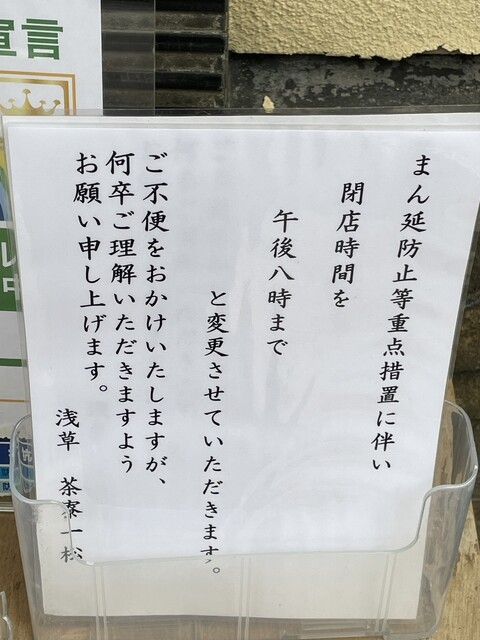 まん延防止等重点措置に伴い
閉店時間を
午後八時まで
と変更させていただきます。
ご不便をおかけいたしますが、
何卒ご理解いただきますよう
お願い申し上げます。
浅草 茶寮一松
宣言